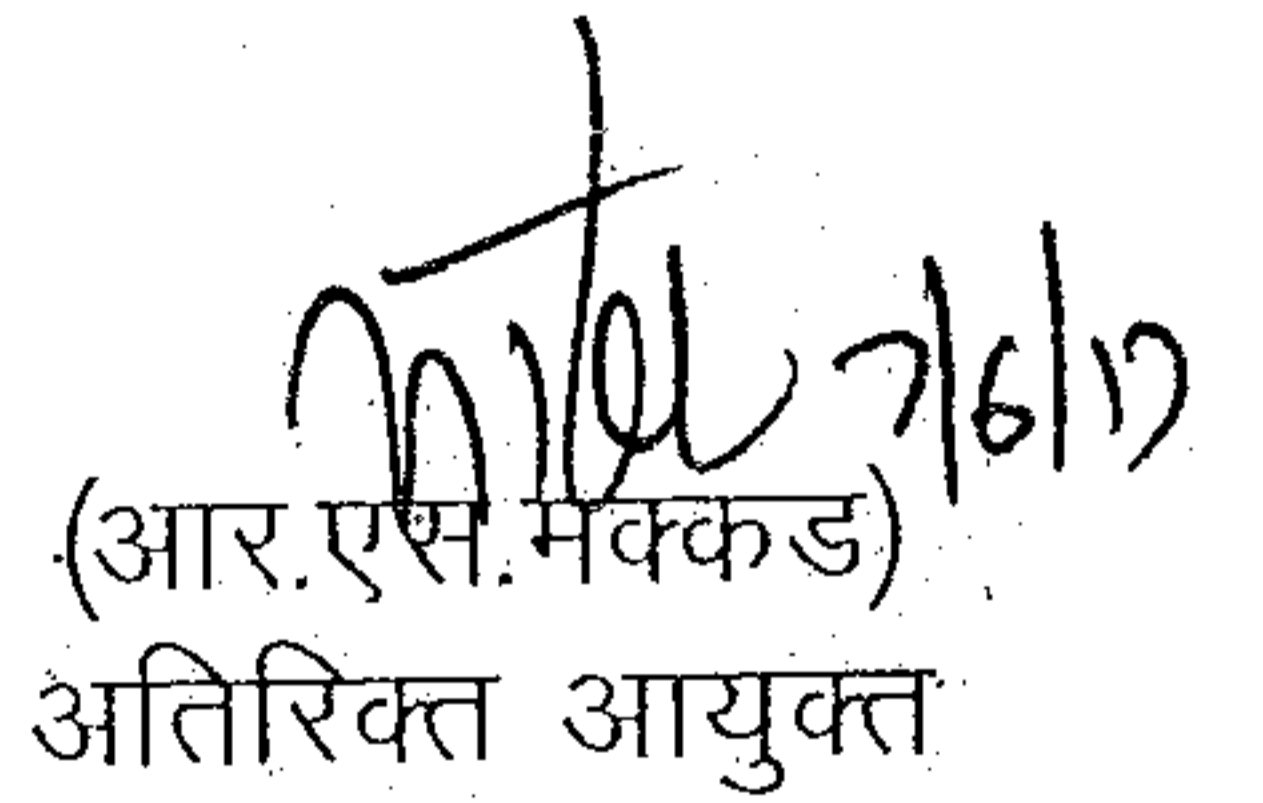 7/6/17
(आर.एस.मक्कड)
अतिरिक्त आयुक्त